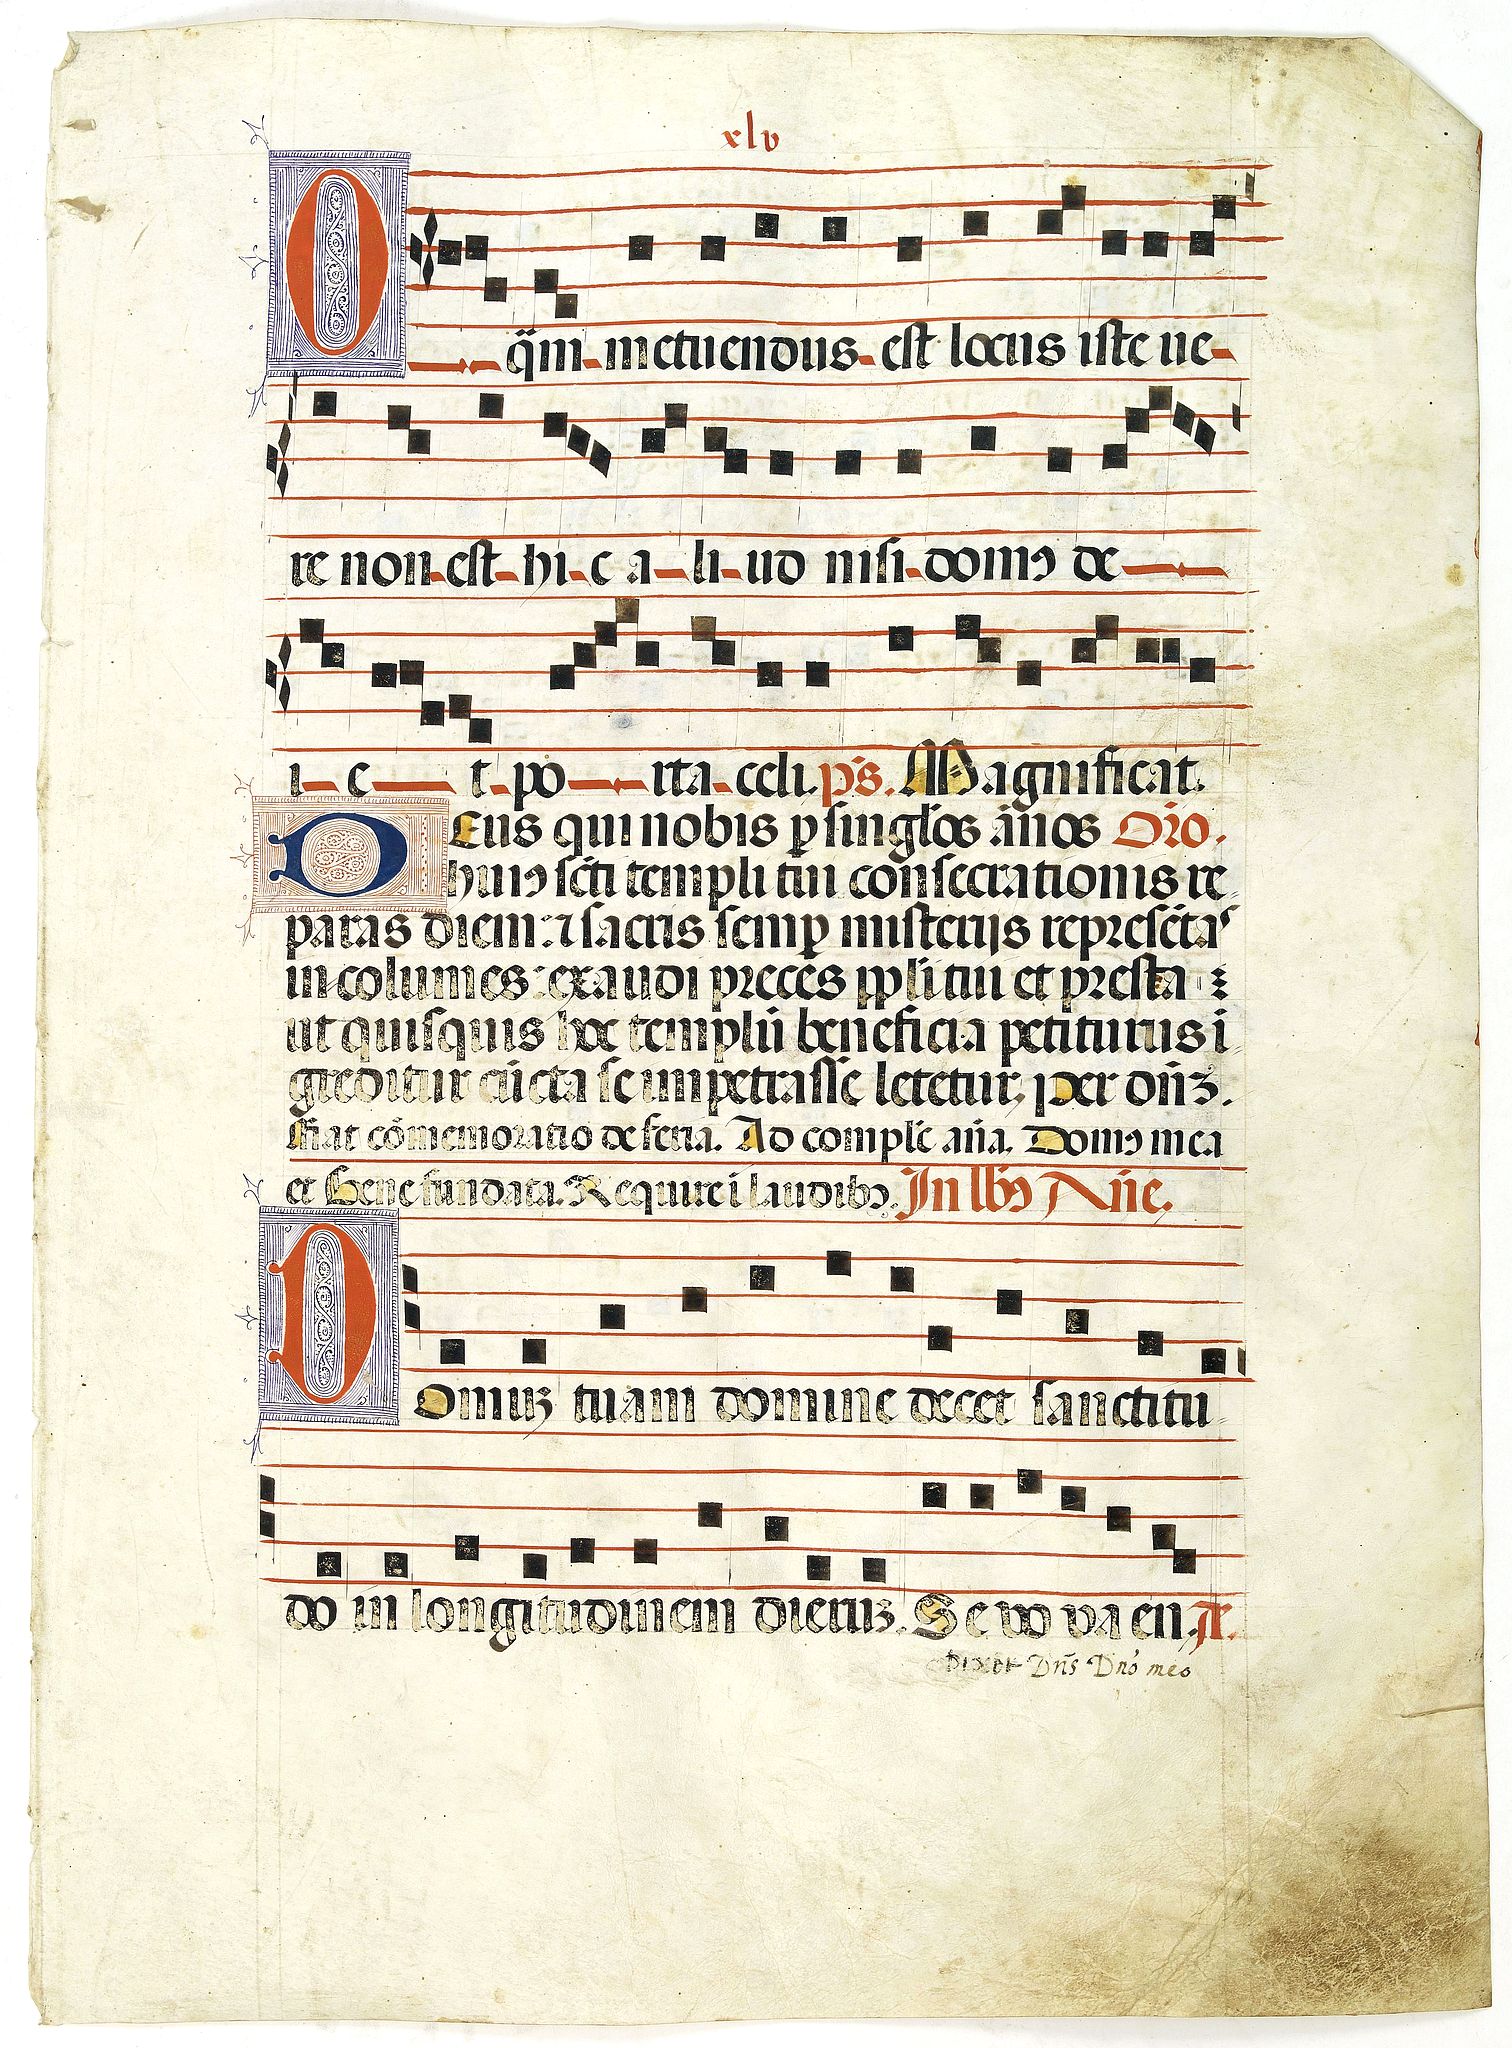 xlv
O q̃m metuendus est locus iste ve
re non est hi c a li ud nisi domꝰ de
i e t po rta celi. p̃s. Magnificat.
DEus qui nobis ꝑ singl̃os ãnos Oro.
huiꝰ sc̃ti templi tui consecrationis re
paras diem: ⁊ sacris semꝑ misterijs represẽtas
incolumes: exaudi preces ppl̃i tui et presta
ut quisquis hoc templũ beneficia petiturus ĩ
greditur cũcta se impetrasse letetur. Per dñʒ.
Fiat cõmemoratio de feria. Ad complẽ añã. Domꝰ mea
et Bene fundata. Require ĩ laudibꝰ. In IIbꝰ Vñe.
DOmuʒ tuam domine decet sanctitu
do in longitudinem dieruʒ. Se vo va en. A.
Dixit Dñs Dño meo